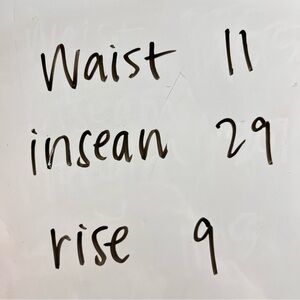 Waist 11
insean 29
rise 9